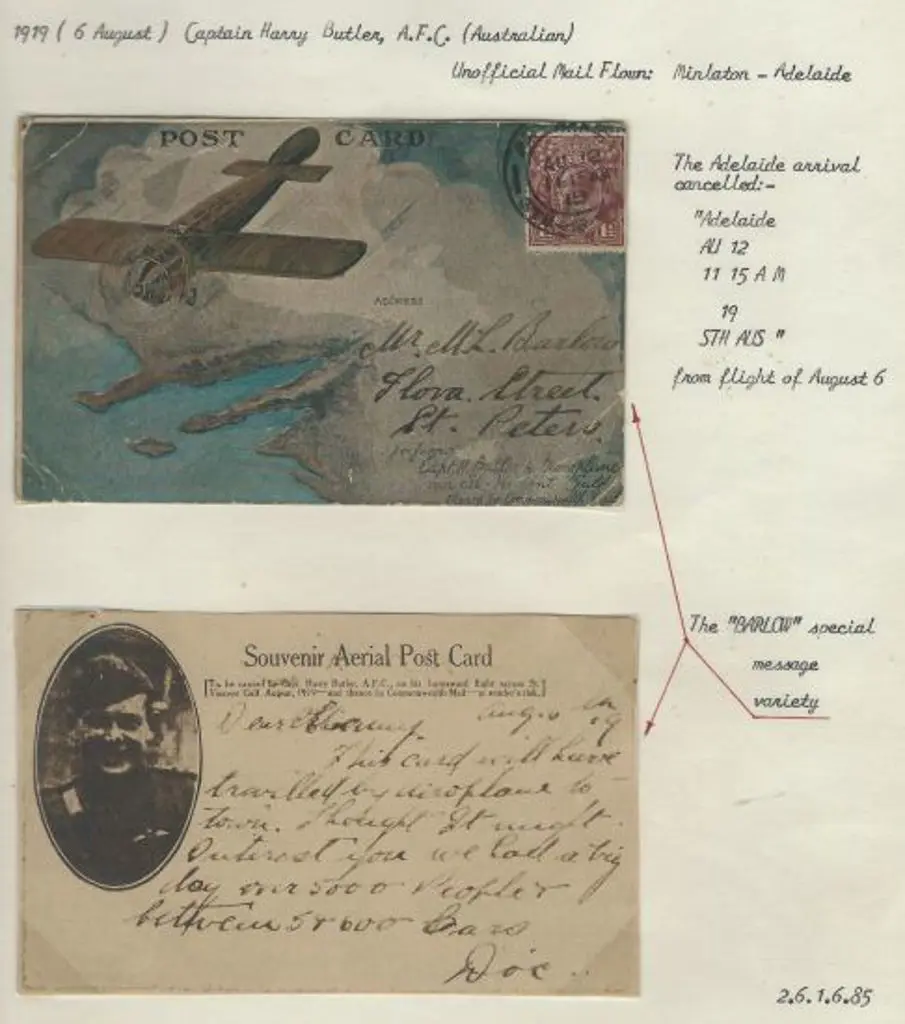 1919 ( 6 August ) Captain Harry Butler, A.F.C. (Australian)
Unofficial Mail Flown: Minlaton - Adelaide
POST CARD
The Adelaide arrival
cancelled:-
"Adelaide
AU 12
11 15 A M
19
STH AUS "
from flight of August 6
ADDRESS
Mr. M.L. Barlow
Flora. Street.
St. Peters.
The "BARLOW" special
message
variety
Souvenir Aerial Post Card
To be carried by Capt. Harry Butler, A.F.C., on his homeward flight across St.
Vincent Gulf, August, 1919—and thence by Commonwealth Mail—at sender's risk.
Dear
This card will have
travelled by airoplane to
town. Thought It might
Interest you we had a big
day over 5000 People &
between 5 & 600 Cars
Doc
2.6.1.6.85